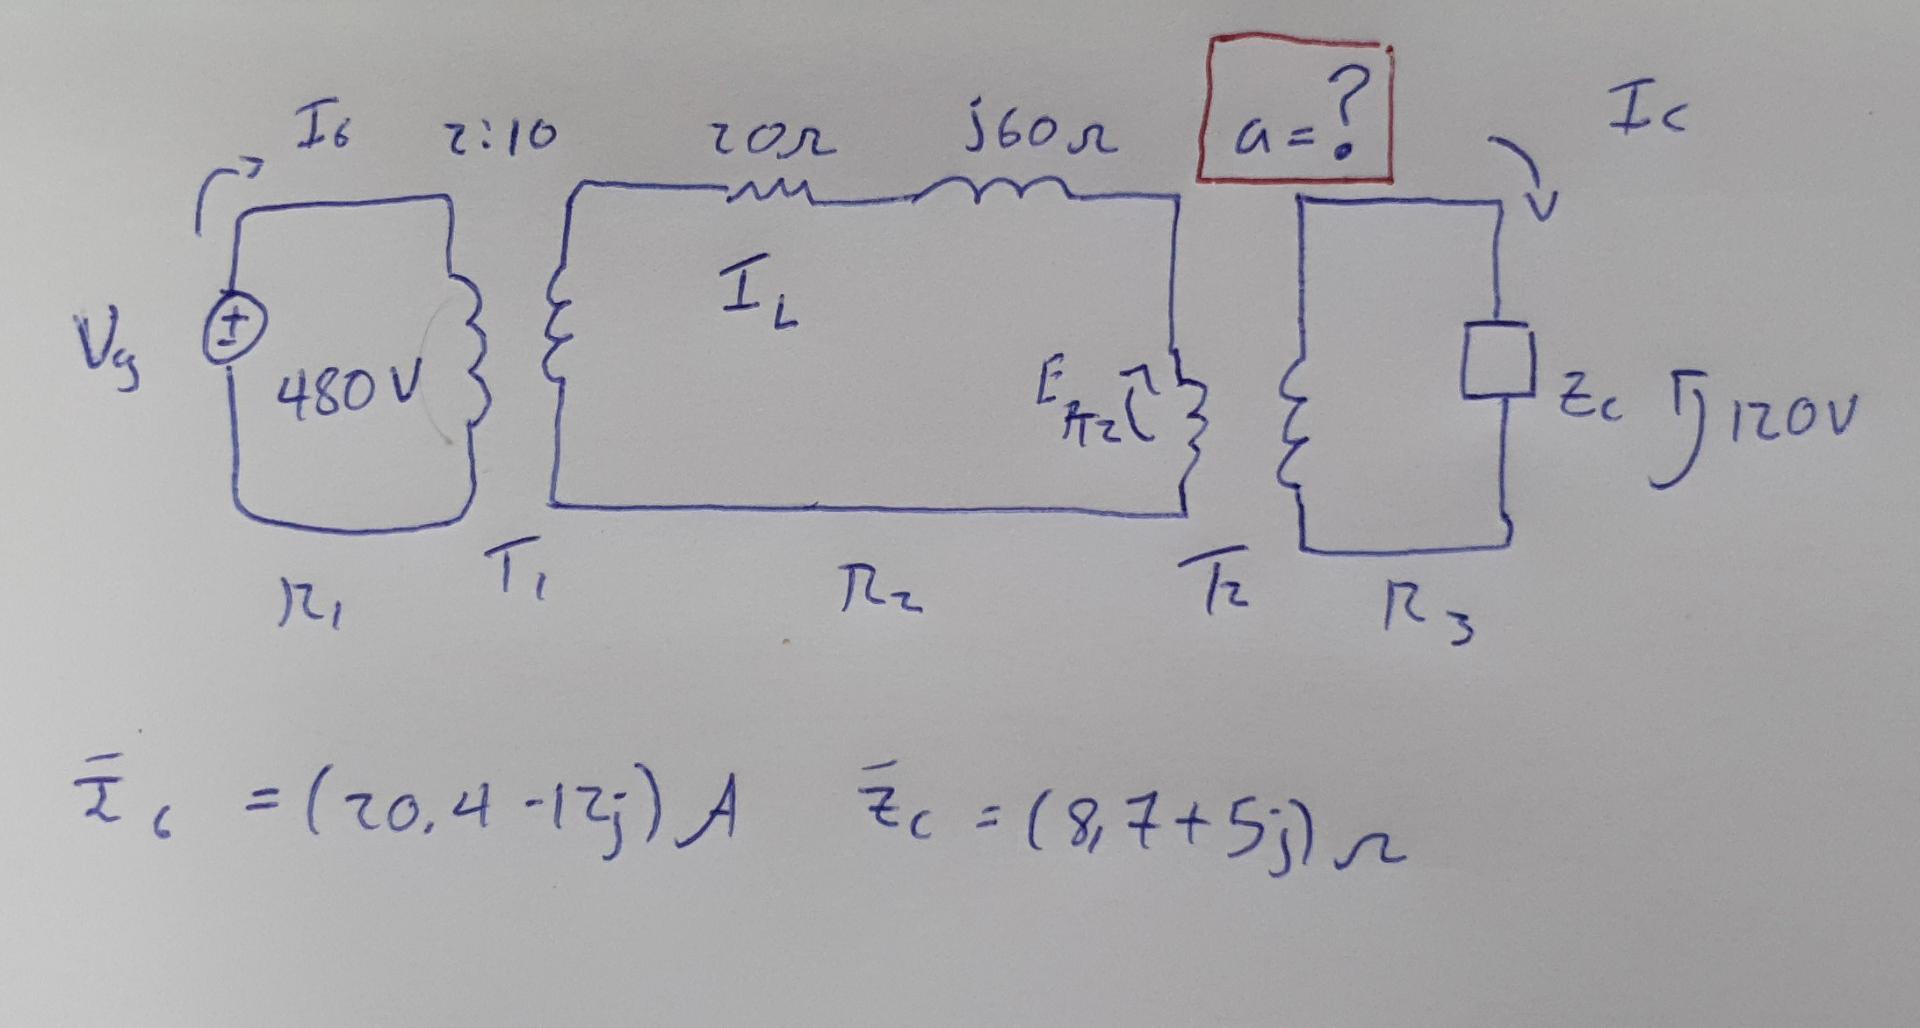 I6 2:10 20Ω j60Ω a=? Ic
IL
Vg ± 480V EA2 Zc 120V
T1 T2
R1 R2 R3
I̅6 = (20.4 -12j) A z̅c = (8,7+5j) Ω